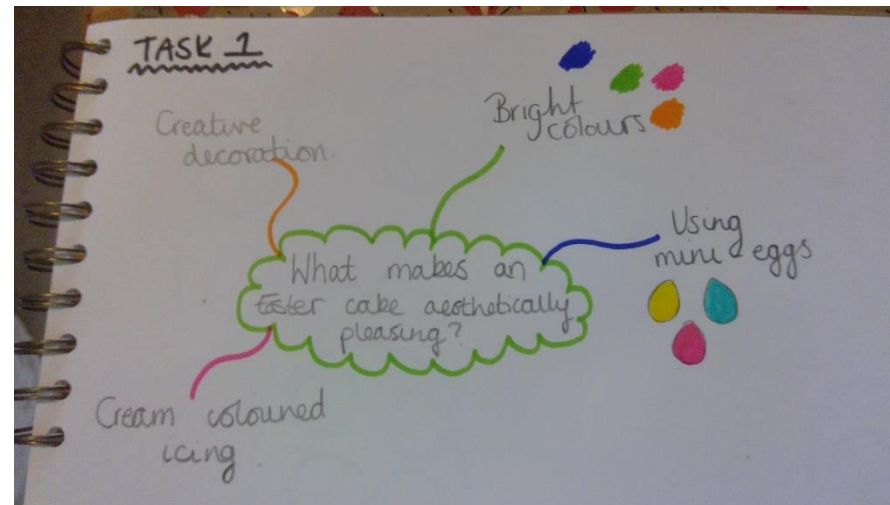 TASK 1
Creative
decoration.
Bright
colours
What makes an
Easter cake aesthetically
pleasing?
Using
mini eggs
Cream coloured
icing